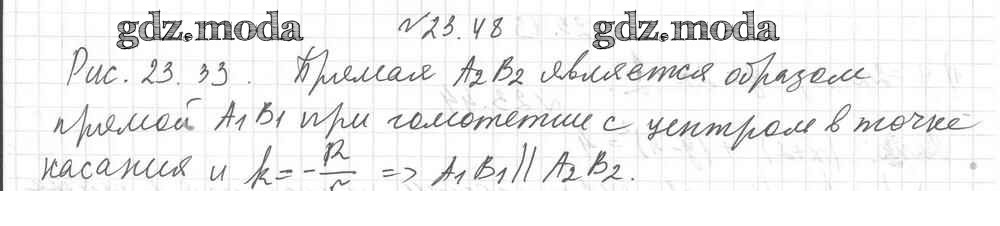 gdz.moda №23.48 gdz.moda
Рис. 23.33. Прямая A₂B₂ является образом
прямой A₁B₁ при гомотетии с центром в точке
касания и k = -R/r => A₁B₁ || A₂B₂.